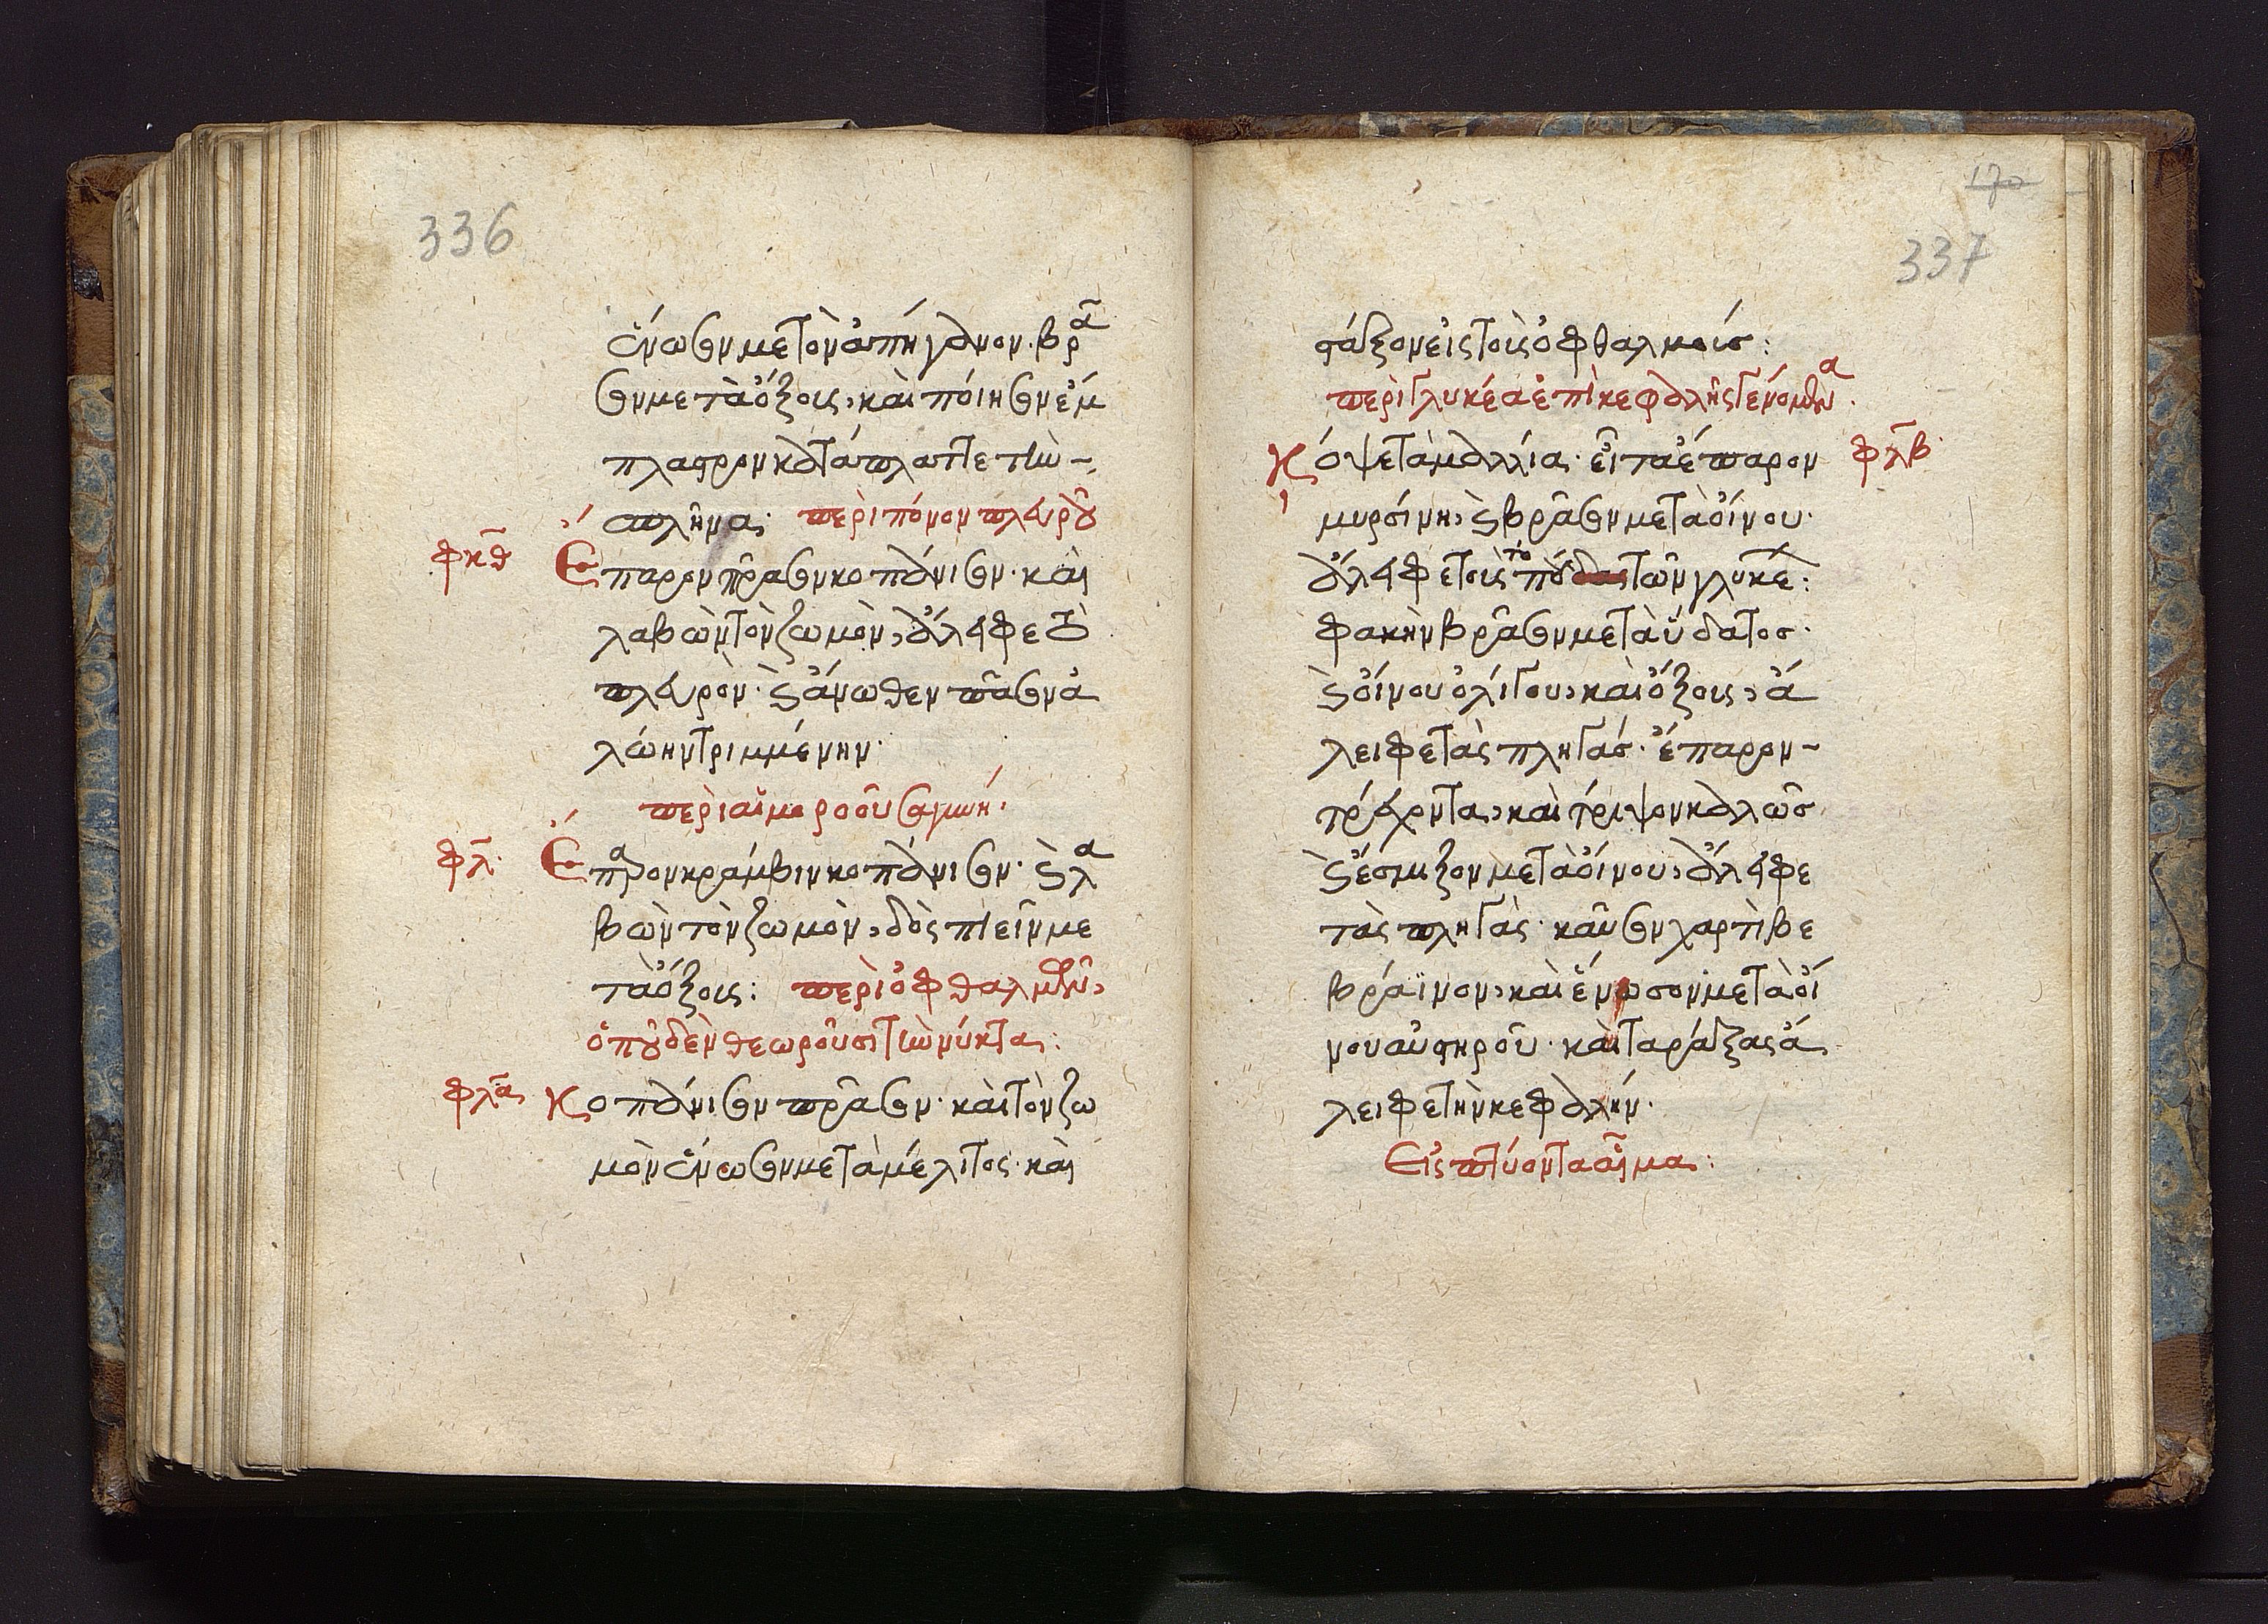 336
ἕνωσον με τὸν ἀπήγανον. βρᾶ
σον με τὰ ὄξους, καὶ ποίησον ἔμ
πλαστρον κατάπλαττε τὴν
σπλῆνα· περὶ πόνον πλευροῦ
φκθ Ἔπαρον πρασονκοπάνισον· καὶ
λαβὼν τὸν ζωμὸν, ἄλειφε τὸ
πλευρὸν· καὶ ἄνωθεν πᾶσον ἀ
λώην τριμμένην·
περὶ αἱμοροοῦσα γυνή·
φλ. Ἔπαρον κράμβιν κοπάνισον· καὶ λα
βὼν τὸν ζωμὸν, δὸς πιεῖν με
τὰ ὄξους: περὶ ὀφθαλμῶν,
ὁποῦ δὲν θεωροῦσι τὴν νύκτα:
φλα Κοπάνισον πρᾶσον· καὶ τὸν ζω
μὸν ἕνωσον μετὰ μέλιτος· καὶ
170
337
στάξον εἰς τοὺς ὀφθαλμούς:
περὶ γλυκέα ἐπὶ κεφαλῆς γενόμενα.
Κόψε τὰ μαλλία· εἶτα ἔπαρον φλβ
μυρσίνη, καὶ βρᾶσον μετὰ οἴνου·
ἄλειφε τοὺς τὸ πο τῶν γλυκέ:
φακὴν βρᾶσον μετὰ ὕδατος·
καὶ οἴνου ὀλίγου, καὶ ὄξους, ἄ
λειφε τὰς πληγάς· ἔπαρον
τρύχοντα, καὶ τρίψον καλῶς
καὶ ἔσμιξον μετὰ οἴνου, ἄλειφε
τὰς πληγὰς· καῦσον χαρτὶ βε
βράϊνον, καὶ ἕνωσον μετὰ οἴ
νου αὐστηροῦ· καὶ ταράξας ἄ
λειφε τὴν κεφαλήν·
Εἰς πτύοντα αἷμα: